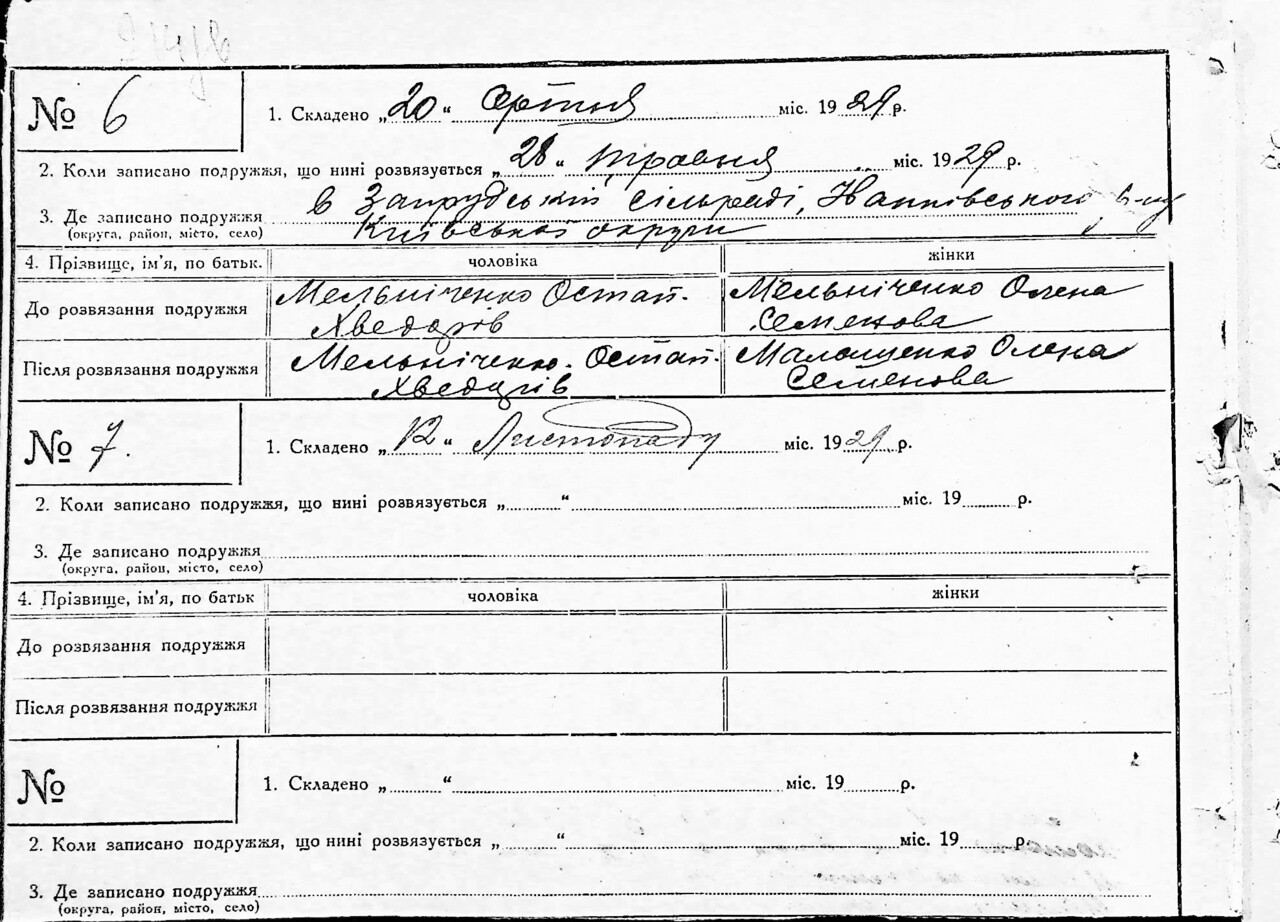 № 6
1. Складено „20“ серпня міс. 1929 р.
2. Коли записано подружжя, що нині розвязується „28“ травня міс. 1929 р.
3. Де записано подружжя в Запрудській сільраді,
(округа, район, місто, село) Київської округи
4. Прізвище, ім’я, по батьк. чоловіка жінки
До розвязання подружжя Мельніченко Остап. Хведорів Мельніченко Олена Семенова
Після розвязання подружжя Мельніченко. Остап. Хведорів Малащенко Олена Семенова
№ 7.
1. Складено „12“ Листопаду міс. 1929 р.
2. Коли записано подружжя, що нині розвязується „ “ міс. 19 р.
3. Де записано подружжя
(округа, район, місто, село)
4. Прізвище, ім’я, по батьк чоловіка жінки
До розвязання подружжя
Після розвязання подружжя
№
1. Складено „ “ міс. 19 р.
2. Коли записано подружжя, що нині розвязується „ “ міс. 19 р.
3. Де записано подружжя
(округа, район, місто, село)